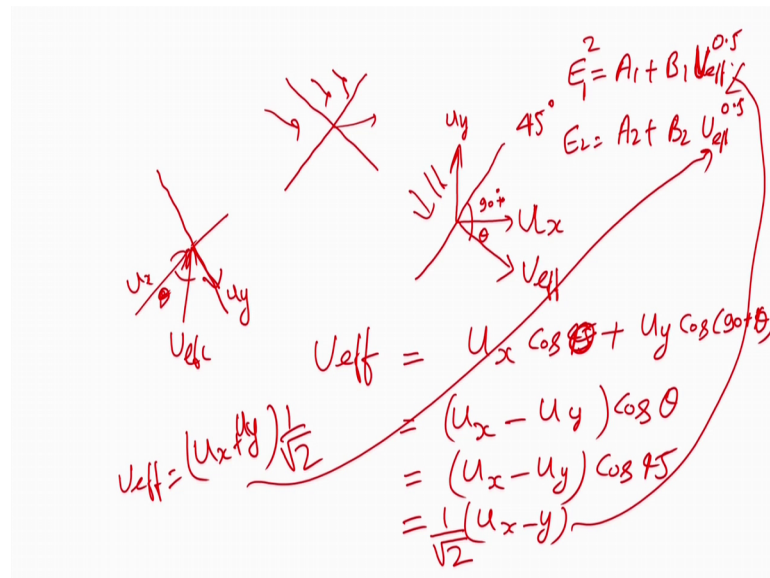 E₁² = A₁ + B₁ Ueff^0.5
E₂ = A₂ + B₂ Ueff^0.5
uy
45°
90+
θ
Ux
Ueff
Uz
θ
uy
Ueff
Ueff = Ux Cos θ + Uy Cos(90+θ)
= (Ux - Uy) Cos θ
= (Ux - Uy) Cos 45
= 1/√2 (Ux - y)
Ueff = (Ux + Uy) 1/√2